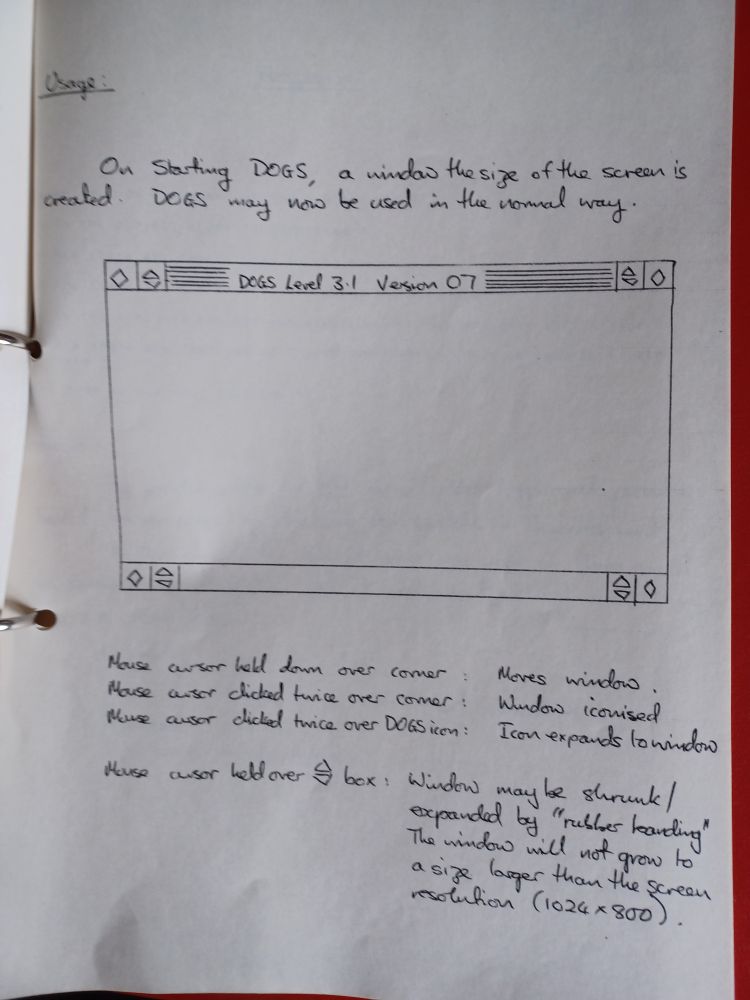 Usage:
On Starting DOGS, a window the size of the screen is
created. DOGS may now be used in the normal way.
DOGS Level 3.1 Version 07
Mouse cursor held down over corner : Moves window.
Mouse cursor clicked twice over corner : Window iconised
Mouse cursor clicked twice over DOGS icon: Icon expands to window
Mouse cursor held over box : Window may be shrunk/
expanded by "rubber banding"
The window will not grow to
a size larger than the screen
resolution (1024 x 800).